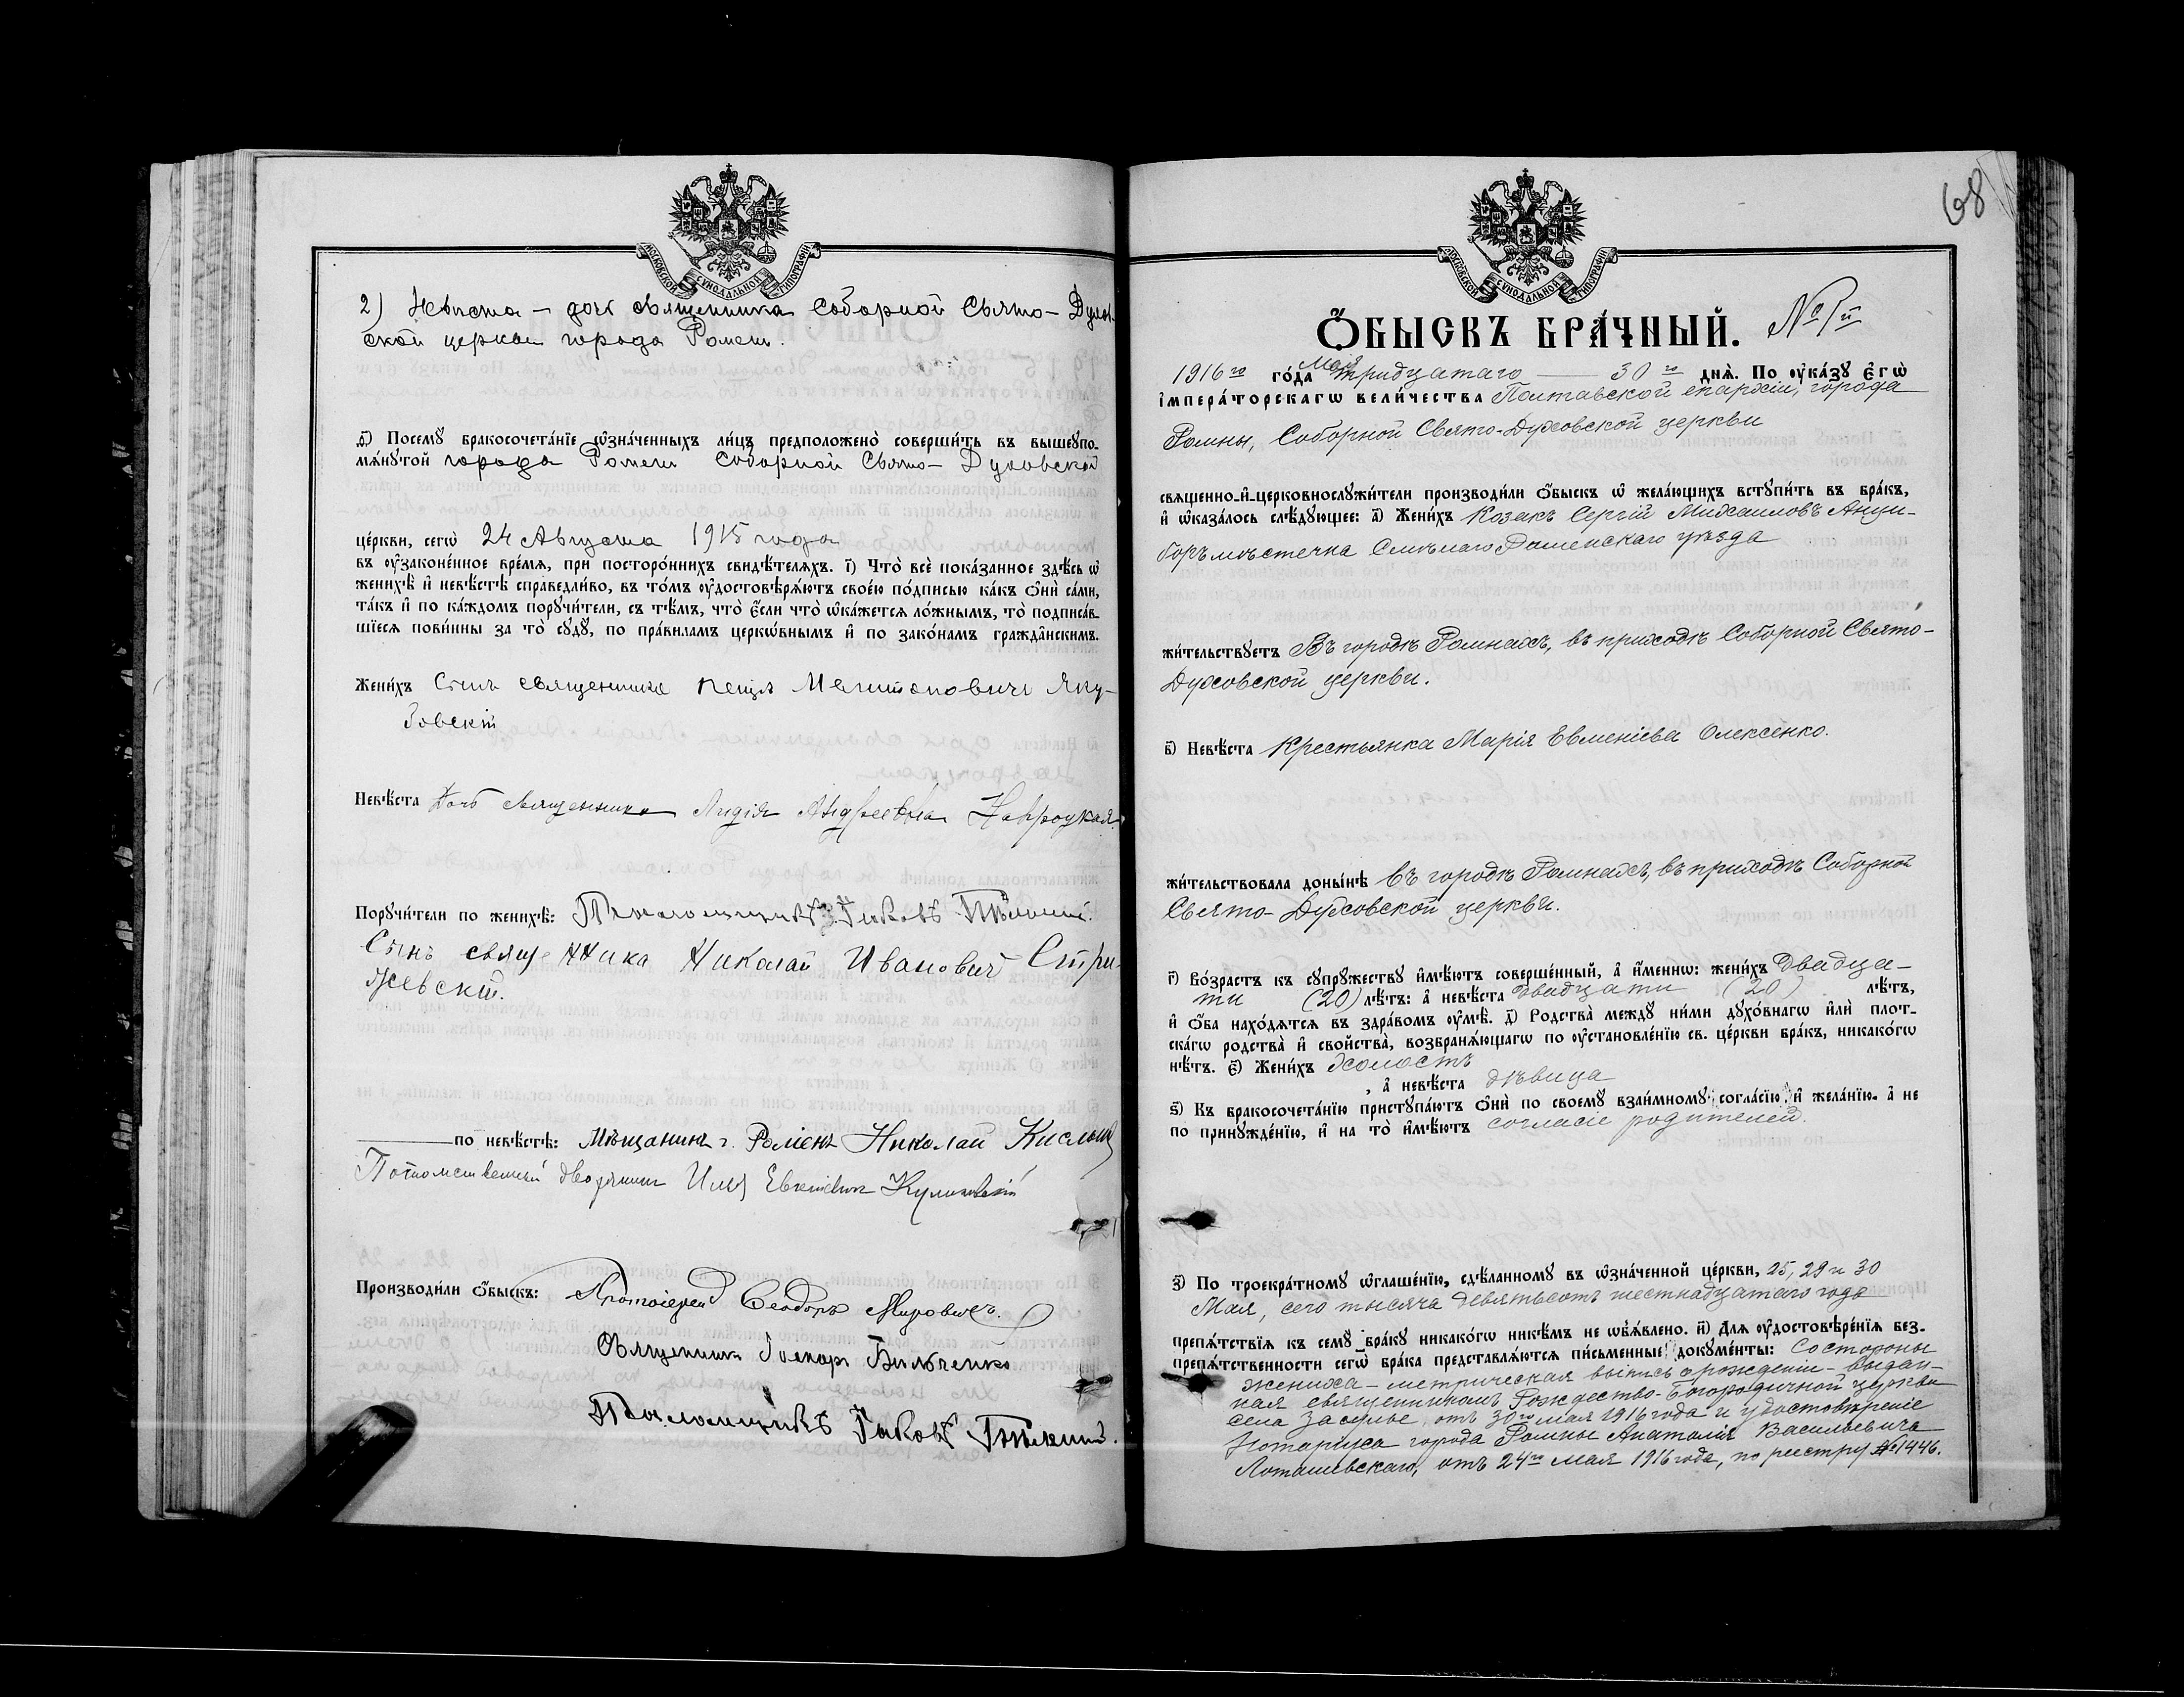 МОСКОВСКОЙ СѴНОДАЛЬНОЙ ТИПОГРАФІИ
2) Невѣста – дочь священника Соборной Свято-Духов-
ской церкви города Ромен.
д҃) Посемꙋ бракосочета́нїе ѡ҆зна́ченныхъ ли́цъ предположено̀ соверши́ть въ вышеꙋпо-
мѧ́нꙋтой города Ромен Соборной Свято-Духовской
це́ркви, сегѡ̀ 24 Августа 1915 года
въ ᲂу҆зако́ненное вре́мѧ, при посторо́ннихъ свидѣ́телѧхъ. і҃) Что̀ всѐ пока́занное здѣ́сь ѡ҆
женихѣ̀ и҆ невѣ́стѣ справедли́во, въ то́мъ ᲂу҆достовѣрѧ́ютъ свое́ю по́дписью ка́къ ѻ҆нѝ са́ми,
та́къ и҆ по ка́ждомъ порꙋчи́тели, съ тѣ́мъ, что̀ є҆́сли что̀ ѡ҆ка́жетсѧ ло́жнымъ, то̀ подписа́в-
шїесѧ пови́нны за то̀ сꙋдꙋ̀, по пра́виламъ церкѡ́внымъ и҆ по зако́намъ гражда̑нскимъ.
Жени́хъ Сын священника Петр Мелитонович Яку-
бовскій
Невѣ́ста Дочь священника Лидія Андреевна Навроцкая.
Порꙋчи́тели по женихѣ̀: Псаломщикъ Іаковъ
Сынъ священника Николай Иванович Стри-
жевскій.
по невѣ́стѣ: Мѣщанинъ г. Роменъ Николай
Потомственный дворянин Илья Евгеніевич Куликовскій
Производи́ли ѻ҆́быскъ: Протоіерей Ѳеодоръ Мирович.
Священник Бильченко
Псаломщикъ Іаковъ
68
МОСКОВСКОЙ СѴНОДАЛЬНОЙ ТИПОГРАФІИ
Ѻ҆́БЫСКЪ БРА́ЧНЫЙ. № 1й
1916го го́да Мая тридцатаго 30го днѧ̀. По ᲂу҆ка́зꙋ є҆гѡ̀
і҆мпера́торскагѡ вели́чества Полтавской епархіи, города
Ромны, Соборной Свято-Духовской церкви
свѧщенно-и҆-церковнослꙋжи́тели производи́ли ѻ҆́быскъ ѡ҆ жела́ющихъ встꙋпи́ть въ бра́къ,
и҆ ѡ҆каза́лось слѣ́дꙋющее: а҃) Жени́хъ Козакъ Сергій Михаиловъ Анци-
боръ мѣстечка Смѣлаго Роменскаго уѣзда
жи́тельствꙋетъ Въ городѣ Ромнахъ, въ приходѣ Соборной Свято-
Духовской церкви.
в҃) Невѣ́ста Крестьянка Марія Евменіева Олексенко.
жи́тельствовала доны́нѣ въ городѣ Ромнахъ, въ приходѣ Соборной
Свято-Духовской церкви.
г҃) Во́зрастъ къ сꙋпрꙋ́жествꙋ и҆мѣ́ютъ соверше́нный, а҆ и҆́меннѡ: жени́хъ Двадца-
ти (20) лѣ́тъ: а҆ невѣ́ста двадцати (20) лѣ́тъ,
и҆ ѻ҆́ба нахо́дѧтсѧ въ здра́вомъ ᲂу҆мѣ̀. д҃) Родства̀ междꙋ ни́ми дꙋхо́внагѡ и҆лѝ плот-
ска́гѡ родства̀ и҆ сво́йства, возбранѧ́ющагѡ по ᲂу҆становле́нїю св. це́ркви бра́къ, никако́гѡ
нѣ́тъ. є҃) Жени́хъ холостъ
, а҆ невѣ́ста дѣвица
ѕ҃) Къ бракосочета́нїю пристꙋпа́ютъ ѻ҆нѝ по своемꙋ взаи́мномꙋ согла́сїю и҆ жела́нїю, а҆ не
по принꙋжде́нїю, и҆ на то̀ и҆мѣ́ютъ согласіе родителей.
з҃) По троекра́тномꙋ ѡ҆глаше́нїю, сдѣ́ланномꙋ въ ѡ҆зна́ченной це́ркви, 25, 29 и 30
Мая, сего тысяча девятьсотъ шестнадцатаго года
препѧ́тствїѧ къ семꙋ̀ бра́кꙋ никако́гѡ никѣ́мъ не ѡ҆б̾ѧ́влено. и҃) Длѧ ᲂу҆достовѣре́нїѧ без-
препѧ́тственности сегѡ̀ бра́ка представлѧ́ютсѧ пи́сьменные докꙋме́нты: Со стороны
жениха – метрическая выпись о рожденіи – выдан-
ная священникомъ Рождество-Богородичной церкви
села Засулье, отъ 30го мая 1916 года и удостовѣреніе
Нотаріуса города Ромны Анатолія Васильевича
Лоташевскаго, отъ 24го мая 1916 года, по реестру № 1446.